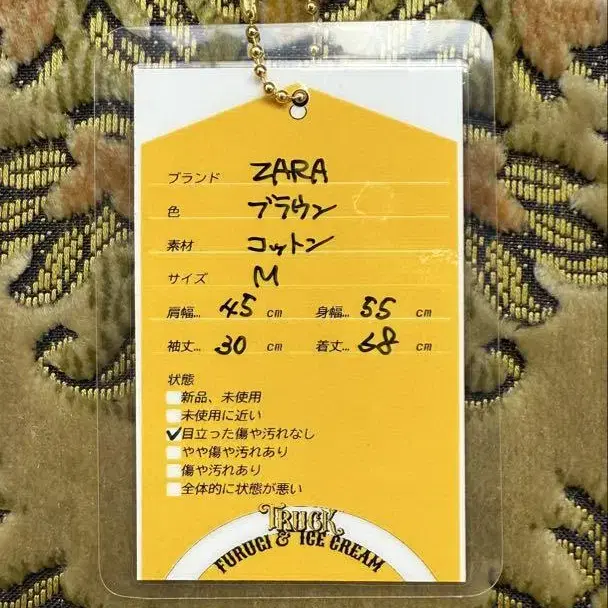 ブランド ZARA
色 ブラウン
素材 コットン
サイズ M
肩幅... 45 cm 身幅... 55 cm
袖丈... 30 cm 着丈... 68 cm
状態
新品、未使用
未使用に近い
✓目立った傷や汚れなし
やや傷や汚れあり
傷や汚れあり
全体的に状態が悪い
TRUCK
FURUGI & ICE CREAM